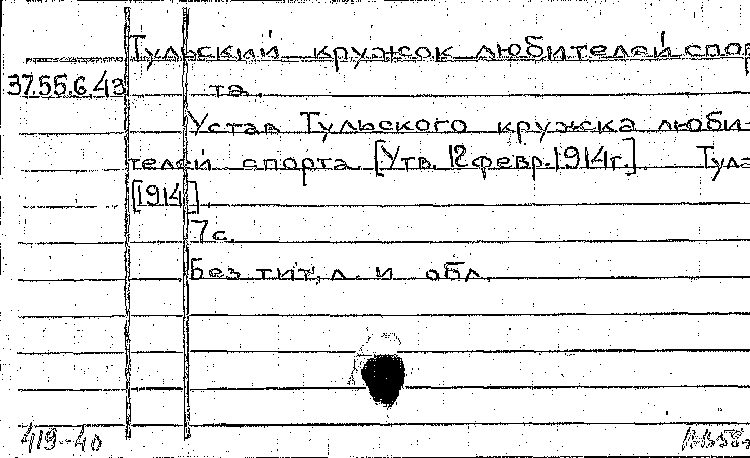 Тульский кружок любителей спор
37.55.6.43 та.
Устав Тульского кружка люби-
телей спорта. [Утв. 12 февр. 1914 г.]. Тула
[1914].
7 с.
Без тит. л. и обл.
419-40